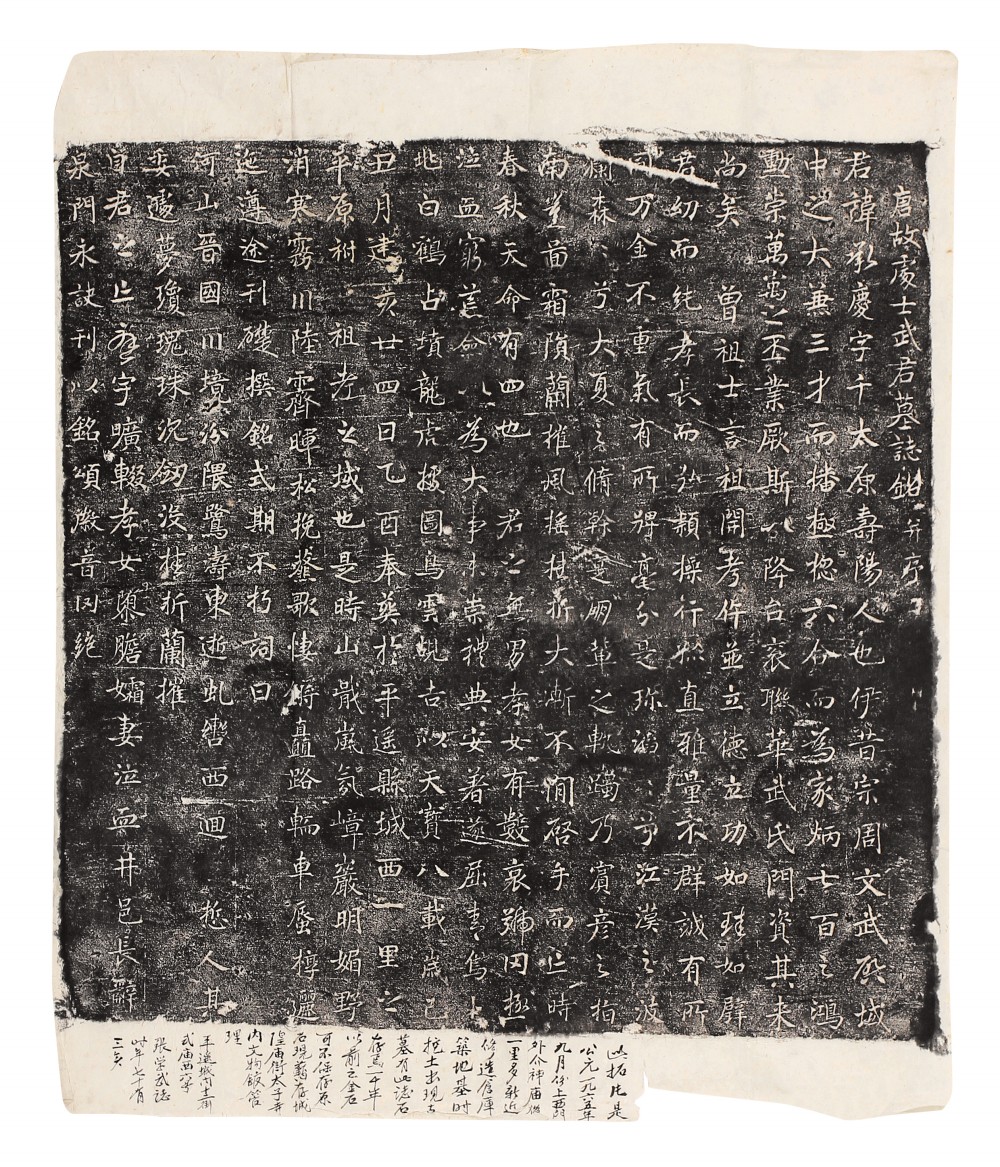 唐故處士武君墓誌銘并序
君諱承慶字千太原壽陽人也伊昔宗周文武啓域
中之大兼三才而播極揔六合而為家炳士百之鴻
塹崇萬寓之丕業厥斯以降台衮聯華武氏門資其来
尚矣曾祖士言祖開考仵並立德立功如珪如璧
君幼而純孝長而弘操行松直雅量不群誠有所
万金不重氣有所毫分是珍滔〻乎江漢之波
森〻兮大夏之脩幹軍之軌躅乃賓彦之指
南豈啚霜隕蘭摧風搖樹折大漸不閒啓手而亡時
春秋天命有四也君之無男孝女有哀號罔極
泣血窮僉以為大事未崇禮典安著遂屈青烏卜
兆白鶴占墳龍虎按圖鳥雲既吉以天寶八載歲己
丑月建亥廿四日乙酉奉葬於平遥縣城西一里之
平原祔祖考之域也是時山戢嵐氛嶂嚴明媚野
消寒霧川陸霽暉松挽薤歌悽将矗路輀車蜃㯭邐
迤遵途刊礎撰銘式期不朽詞曰
河山晉國川境汾隈鷺濤東逝虬轡西迴悊人其
委夢瓊瑰珠沉劔没桂折蘭摧
自君之亡庭宇曠輟孝女膽孀妻泣血井邑長辭
泉門永訣刊以銘頌徽音罔絶
此拓片是
公元一九六五年
九月份上西門
外介神庙後
一里多新近
修造倉庫
築地基時
挖土出現古
墓有此誌石
存焉一千年
以前之金石
可不保存原
石現藉存城
隍庙街太子寺
内文物飯管
理
平遥城内土街
式庙西六号
張荣武誌
时年七十有
三矣